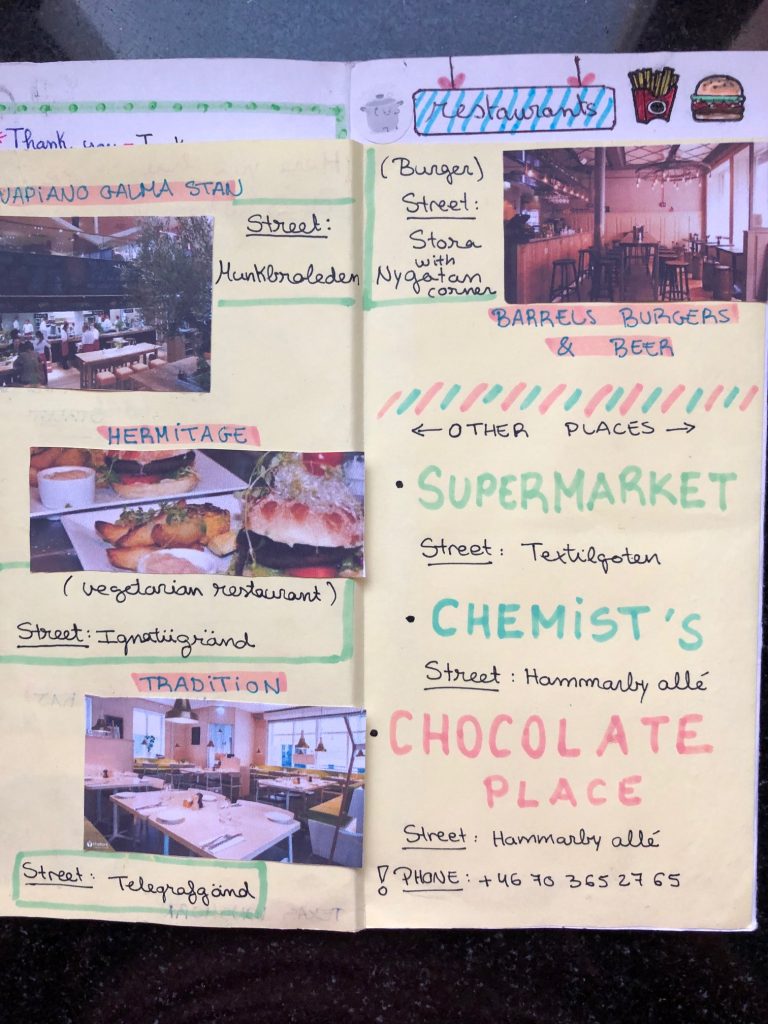 Thank you -
VAPIANO GALMA STAN
Street:
Munkbroleden
HERMITAGE
(vegetarian restaurant)
Street: Ignatiigränd
TRADITION
Street: Telegrafgänd
restaurants
(Burger)
Street:
Stora
with
Nygatan
corner
BARRELS BURGERS
& BEER
← OTHER PLACES →
• SUPERMARKET
Street: Textilgoten
• CHEMIST'S
Street: Hammarby allé
• CHOCOLATE
PLACE
Street: Hammarby allé
! PHONE: +46 70 365 27 65